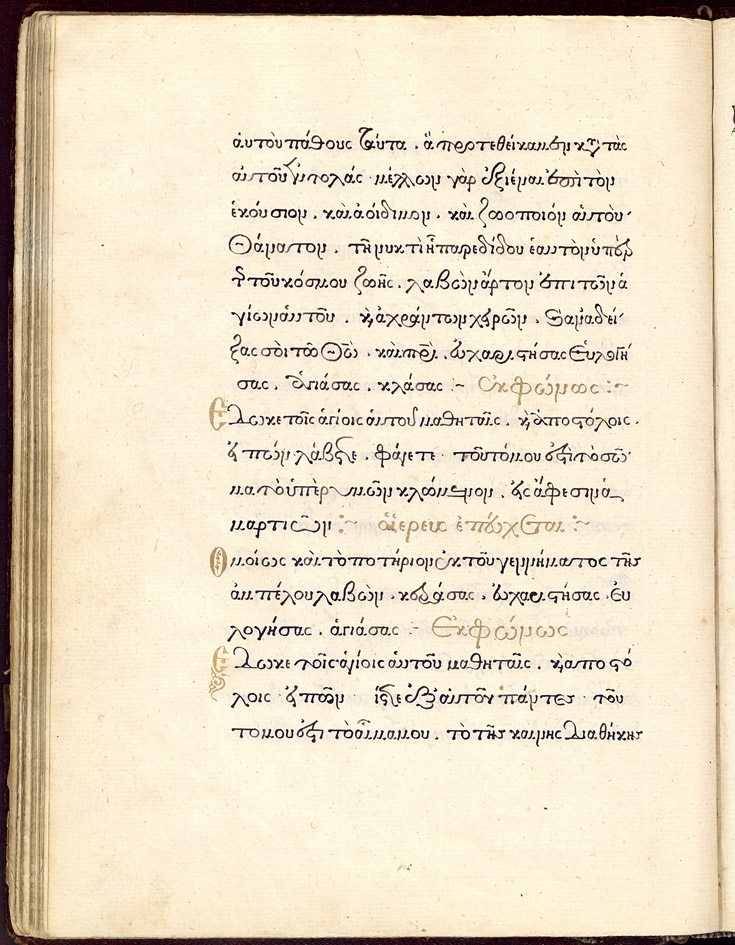 αὐτοῦ πάθους ταῦτα . ἃ προτεθείκαμεν κατὰ τὰς
αὐτοῦ ἐντολάς · μέλλων γὰρ ἐξιέναι ἐπὶ τὸν
ἑκούσιον . καὶ ἀοίδιμον . καὶ ζωοποιὸν αὐτοῦ
Θάνατον . τῆ νυκτὶ ἧ παρεδίδου ἑαυτὸν ὑπὲρ
τῆς τοῦ κόσμου ζωῆς . λαβὼν ἄρτον ἐπὶ τῶν ἁ
γίων αὐτοῦ . καὶ ἀχράντων χειρῶν . καὶ ἀναδεί
ξας σοὶ τῶ Θῶ . καὶ πρὶ . εὐχαριστήσας Εὐλογή
σας . ἁγιάσας . κλάσας :~ Ἐκφώνως :~
Ἔδωκε τοῖς ἁγίοις αὐτοῦ μαθηταῖς . καὶ ἀποστόλοις .
εἰπών · λάβετε . φάγετε · τοῦτό μου ἐστὶ τὸ σῶ
μα τὸ ὑπὲρ ὑμῶν κλώμενον . εἰς ἄφεσιν ἁ
μαρτιῶν :~ ὁ ἱερεὺς ἐπεύχεται :~
Ὁμοίως καὶ τὸ ποτήριον ἐκ τοῦ γεννήματος τῆς
ἀμπέλου λαβὼν . κεράσας . εὐχαριστήσας . Εὐ
λογήσας . ἁγιάσας :~ Ἐκφώνως
Ἔδωκε τοῖς ἁγίοις αὐτοῦ μαθηταῖς . καὶ ἀποστό
λοις · εἰπών · πίετε ἐξ αὐτοῦ πάντες · τοῦ
τό μου ἐστὶ τὸ αἷμά μου . τὸ τῆς καινῆς διαθήκης